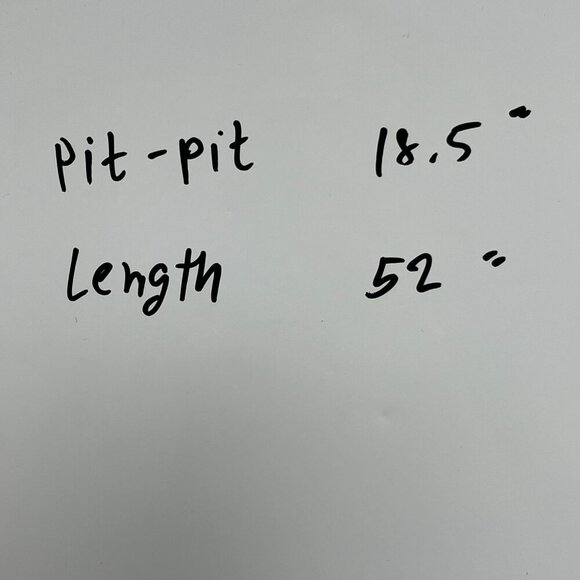 pit-pit 18.5"
Length 52"